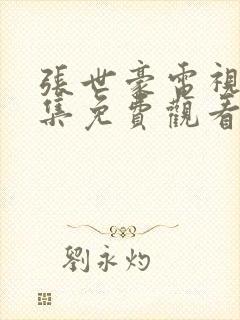 張世豪電視
集免費觀看
劉永灼